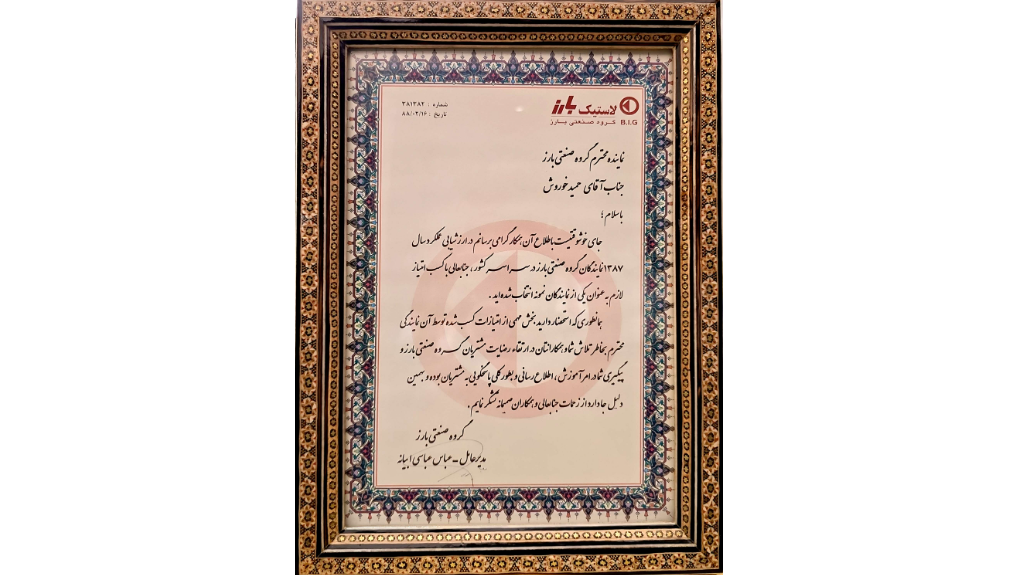 لاستیک بارز
B.I.G گروه صنعتی بارز
شماره : ۳۸۱۳۸۲
تاریخ : ۸۸/۰۲/۱۶
نماینده محترم گروه صنعتی بارز
جناب آقای حمید خوروش
باسلام ؛
جای خوشوقتیست باطلاع آن همکار گرامی برسانم در ارزشیابی عملکرد سال
۱۳۸۷ نمایندگان گروه صنعتی بارز در سراسر کشور ، جنابعالی با کسب امتیاز
لازم به عنوان یکی از نمایندگان نمونه انتخاب شده اید .
همانطوری که استحضار دارید بخش مهمی از امتیازات کسب شده توسط آن نمایندگی
محترم بخاطر تلاش شما و همکارانتان در ارتقاء رضایت مشتریان گروه صنعتی بارز و
پیگیری شما در امر آموزش ، اطلاع رسانی و بطور کلی پاسخگویی به مشتریان بوده و بهمین
دلیل جا دارد از زحمات جنابعالی و همکاران صمیمانه تشکر نمایم .
گروه صنعتی بارز
مدیرعامل - عباس عباسی ابیانه